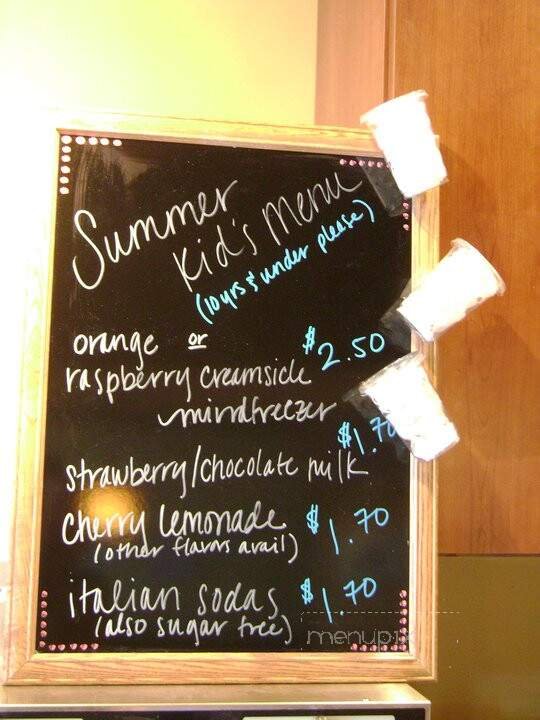 Summer
Kid's Menu
(10 yrs & under please)
orange or
raspberry creamsicle $2.50
mindfreezer
strawberry/chocolate milk $1.70
cherry lemonade $1.70
(other flavors avail)
italian sodas $1.70
(also sugar free)
menupix